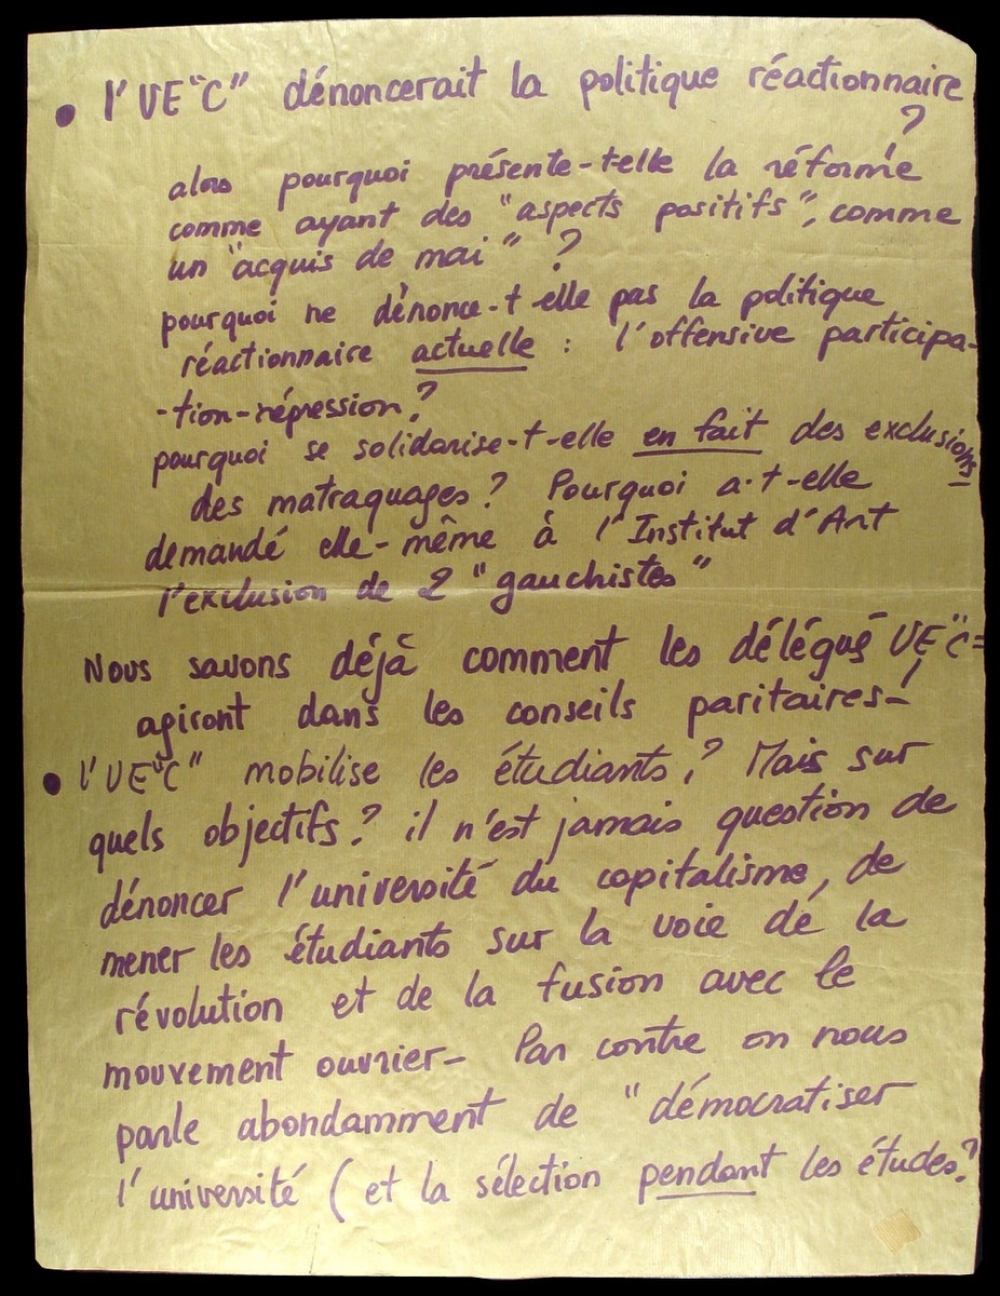 • l'UE"C" dénoncerait la politique réactionnaire
?
alors pourquoi présente-t-elle la réforme
comme ayant des "aspects positifs", comme
un "acquis de mai" ?
pourquoi ne dénonce-t elle pas la politique
réactionnaire actuelle : l'offensive participa-
-tion-répression?
pourquoi se solidarise-t-elle en fait des exclusions
des matraquages? Pourquoi a-t-elle
demandé elle-même à l'Institut d'Art
l'exclusion de 2 "gauchistes"
Nous savons déjà comment les délégué UE"C"
agiront dans les conseils paritaires-!
• l'UE"C" mobilise les étudiants? Mais sur
quels objectifs? il n'est jamais question de
dénoncer l'université du capitalisme, de
mener les étudiants sur la voie de la
révolution et de la fusion avec le
mouvement ouvrier- Par contre on nous
parle abondamment de "démocratiser
l'université (et la sélection pendant les études?